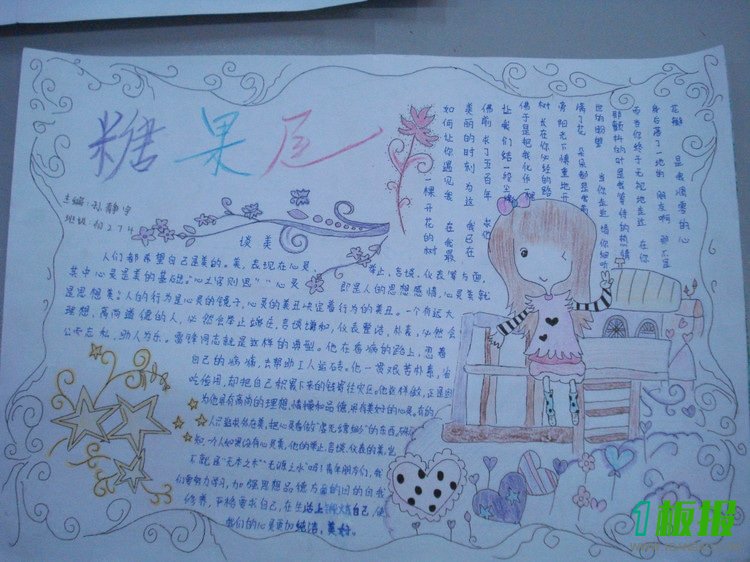 糖果屋
主编:孙静宇
地址:初274
一棵开花的树
如何让你遇见我 在我最
美丽的时刻 为这 我已在
佛前 求了五百年 求你
让我们结一段尘缘
佛于是把我化作一棵
树 长在你必经的路
旁 阳光下慎重地开
满了花 朵朵都是我前
世的盼望 当你走近 请你细听
那颤抖的叶是我等待的热情
而当你终于无视地走过 在你
身后落了一地的 朋友啊 那不是
花瓣 是我凋零的心
谈美
人们都希望自己是美的。美,表现在心灵 举止,言谈,仪表等方面,
其中心灵美是美的基础。"心灵 即是人的思想感情,心灵美就
是思想美;人的行为是心灵的镜子,心灵的美丑决定着行为的美丑。一个有远大
理想,高尚道德的人,必然会举止端庄,言谈谦和,仪表整洁,朴素,必然会
公而忘私,助人为乐。雷锋同志就是这样的典型。他在看病的路上,忍着
自己的病痛,去帮助工人运砖。他一贯艰苦朴素,省
吃俭用,却把自己积累下来的钱寄往灾区。他这样做,正是因
为他具有高尚的理想,情操和品德,具有美好的心灵。有的
人只追求外在美,把心灵看作"虚无缥缈"的东西,
知,一个人如果没有心灵美,他的举止,言谈,仪表的美,岂
不就是"无本之木""无源之水"吗!青年朋友们,我
们要努力学习,加强思想品德方面的自我
修养,严格要求自己,在生活上 自己,使
我们的心灵更加纯洁,美好。
1板报